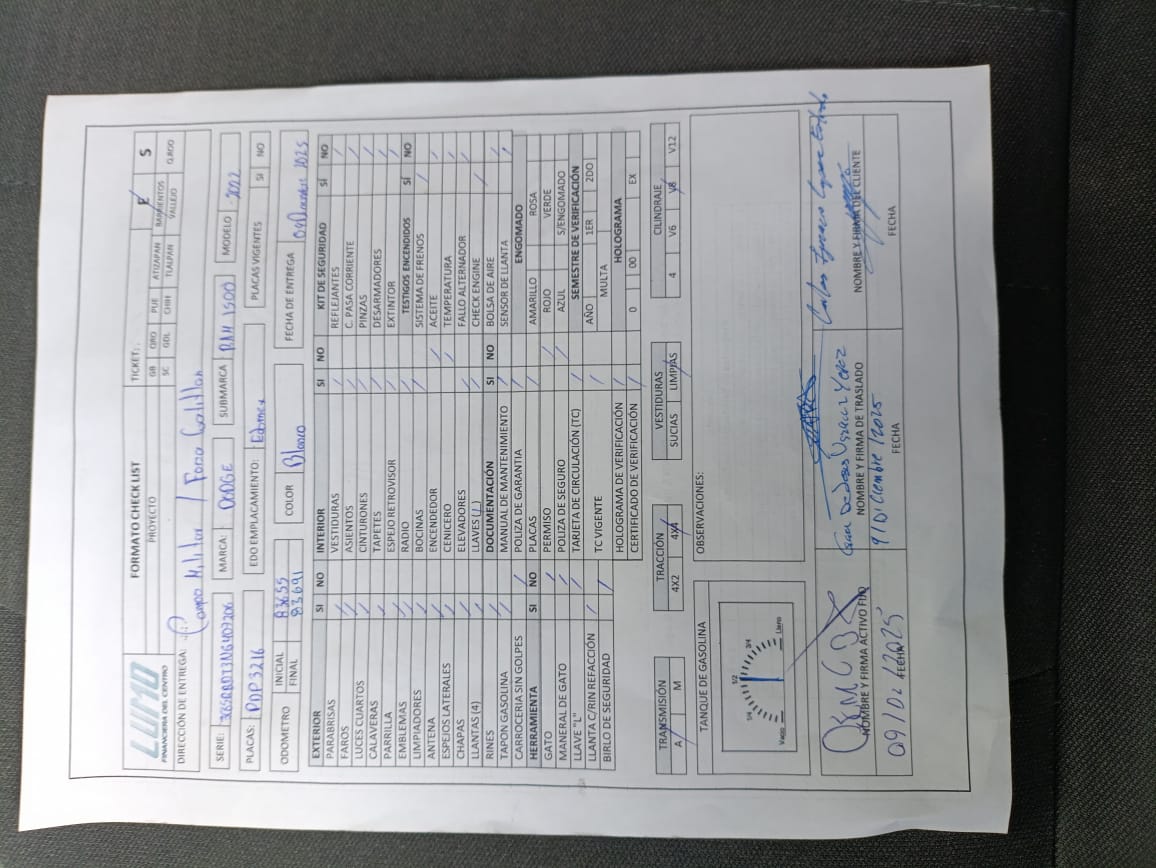 LUMO
FINANCIERA DEL CENTRO
FORMATO CHECK LIST
TICKET:
PROYECTO
GB QRO PUE ATIZAPAN BARRIENTOS
SC GDL CHIH TLALPAN VALLEJO Q.ROO
E S
DIRECCIÓN DE ENTREGA: Campo Militar /
SERIE: MARCA: DODGE SUBMARCA RAM 1500 MODELO 2022
PLACAS: PDP3216 EDO EMPLACAMIENTO: Edomex PLACAS VIGENTES SI NO
ODOMETRO INICIAL 83655 COLOR Blanco FECHA DE ENTREGA 09 Diciembre 2025
FINAL 83691
EXTERIOR SI NO
PARABRISAS
FAROS
LUCES CUARTOS
CALAVERAS
PARRILLA
EMBLEMAS
LIMPIADORES
ANTENA
ESPEJOS LATERALES
CHAPAS
LLANTAS (4)
RINES
TAPON GASOLINA
CARROCERIA SIN GOLPES
HERRAMIENTA SI NO
GATO
MANERAL DE GATO
LLAVE "L"
LLANTA C/RIN REFACCIÓN
BIRLO DE SEGURIDAD
INTERIOR SI NO
VESTIDURAS
ASIENTOS
CINTURONES
TAPETES
ESPEJO RETROVISOR
RADIO
BOCINAS
ENCENDEDOR
CENICERO
ELEVADORES
LLAVES (1)
DOCUMENTACIÓN SI NO
MANUAL DE MANTENIMIENTO
POLIZA DE GARANTIA
PLACAS
PERMISO
POLIZA DE SEGURO
TARJETA DE CIRCULACIÓN (TC)
TC VIGENTE
HOLOGRAMA DE VERIFICACIÓN
CERTIFICADO DE VERIFICACIÓN
KIT DE SEGURIDAD SÍ NO
REFLEJANTES
C. PASA CORRIENTE
PINZAS
DESARMADORES
EXTINTOR
TESTIGOS ENCENDIDOS SÍ NO
SISTEMA DE FRENOS
ACEITE
TEMPERATURA
FALLO ALTERNADOR
CHECK ENGINE
BOLSA DE AIRE
SENSOR DE LLANTA
ENGOMADO
AMARILLO ROSA
ROJO VERDE
AZUL S/ENGOMADO
SEMESTRE DE VERIFICACIÓN
AÑO 1ER 2DO
MULTA
HOLOGRAMA
0 00 EX
TRANSMISIÓN
A M
TRACCIÓN
4X2 4X4
VESTIDURAS
SUCIAS LIMPIAS
CILINDRAJE
4 V6 V8 V12
TANQUE DE GASOLINA
Vacío 1/4 1/2 3/4 Lleno
OBSERVACIONES:
NOMBRE Y FIRMA ACTIVO FIJO
09/02/2025
FECHA
NOMBRE Y FIRMA DE TRASLADO
9/Diciembre/2025
FECHA
NOMBRE Y FIRMA DEL CLIENTE
FECHA